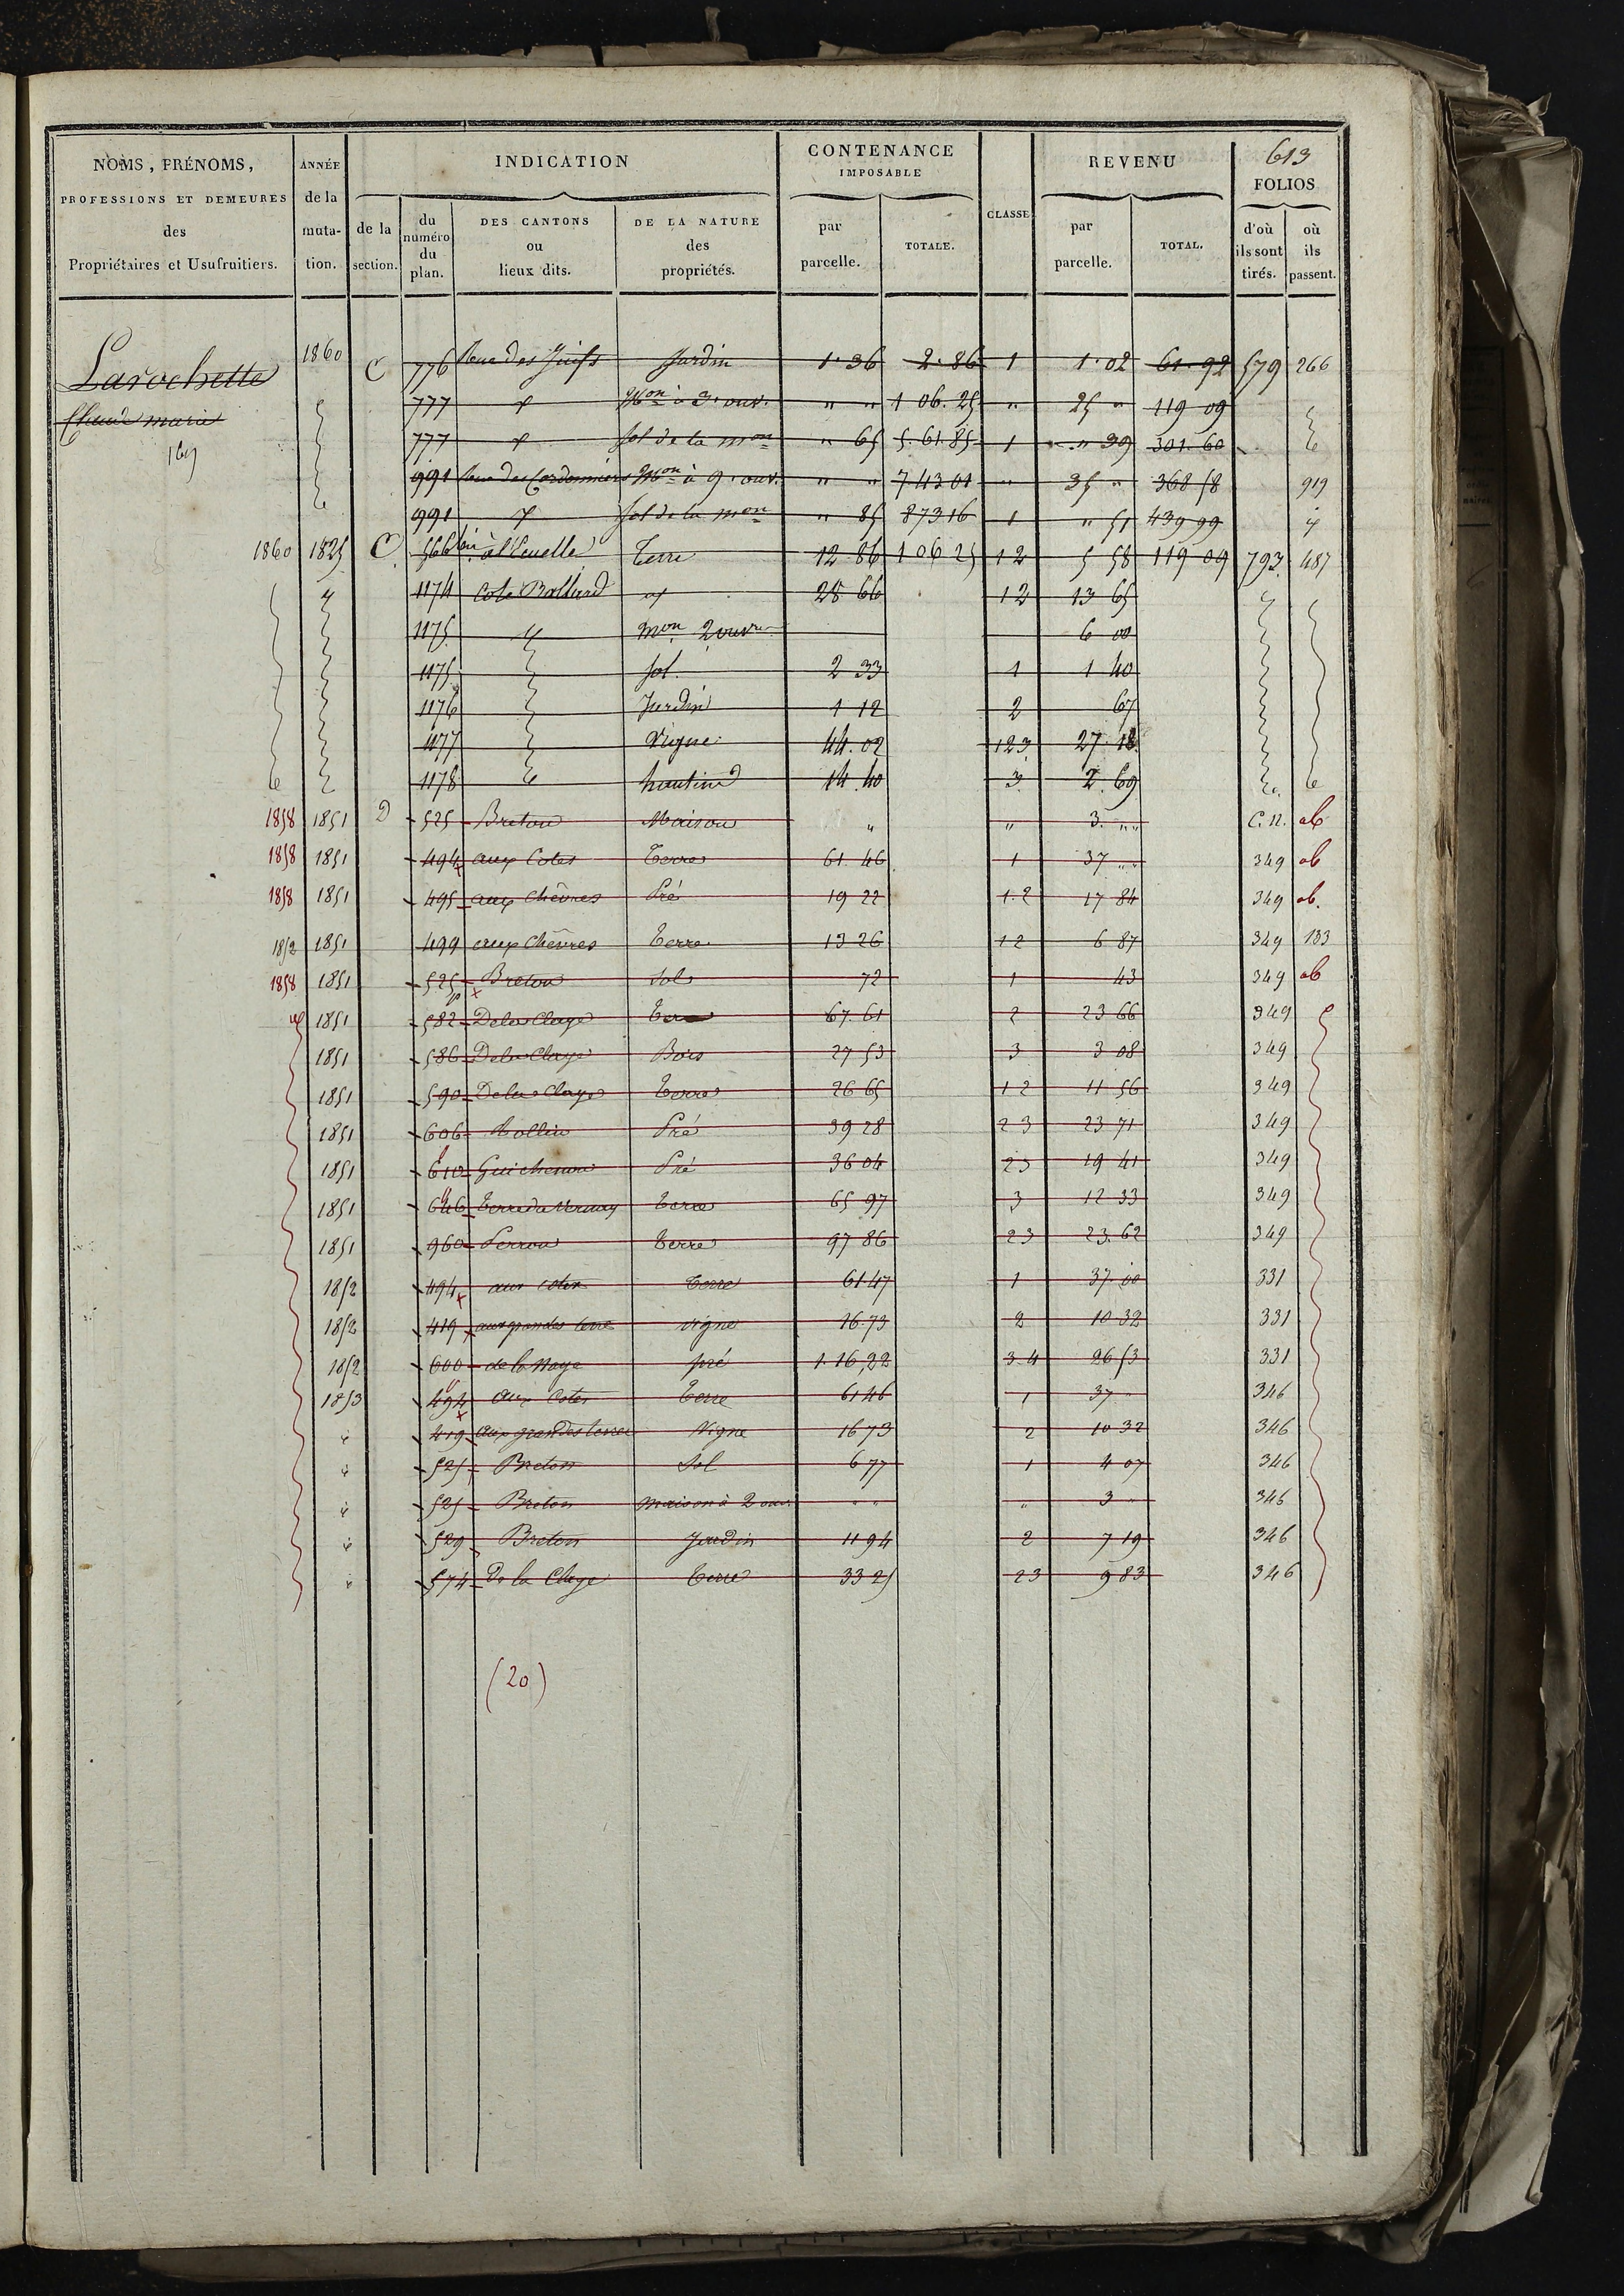 613
NOMS, PRÉNOMS, PROFESSIONS ET DEMEURES des Propriétaires et Usufruitiers.
ANNÉE de la muta- tion.
INDICATION
de la section.
du numéro du plan.
DES CANTONS ou lieux dits.
DE LA NATURE des propriétés.
CONTENANCE IMPOSABLE
par parcelle.
TOTALE.
CLASSE
REVENU
par parcelle.
TOTAL.
FOLIOS
d'où ils sont tirés.
où ils passent.
Larochette 1860 C 776 Rue des Juifs Jardin 1.36 2.86 1 1.02 61.92 579 266
Claude marie 777 Mon à 3. ouv. " " 1 06.25 " 25 " 119 09
777 Sol de la mon " 65 5.61.85 1 " 39 301 60
991 Rue des Cordonniers Mon à 9. ouv. " " 7 43 01 " 35 " 368 58 919
991 Sol de la mon " 85 8 73 16 1 " 51 439 99
1860 1825 C 566 Terre 12 86 1 06 25 12 5 58 119 09 793 487
1174 Cote Balland 28 66 12 13 65
1175 mon 2 ouvr 6 00
1175 Sol 2 33 1 1 40
1176 Jardin 1 12 2 67
1177 Vigne 44.02 123 27.18
1178 hautin 14.40 3 2.69
1858 1851 D 525 Breton Maison " " 3. " C.N. ab
1858 1851 494 aux Cotes Terre 61 46 1 37 " 349 ab
1858 1851 495 aux Chêvres Pré 19 22 1.2 17 84 349 ab.
1852 1851 499 aux Chêvres Terre 13 26 12 6 87 349 133
1858 1851 525 Breton Sol 72 1 43 349 ab
1851 582 De la Claye Terre 67.61 2 23 66 349
1851 586 De la Claye Bois 27 53 3 3 08 349
1851 590 De la Claye Terre 26 65 12 11 56 349
1851 606 Mollin Pré 39 28 23 23 71 349
1851 610 Pré 36 04 23 19 41 349
1851 646 Terre du Terre 65 97 3 12 33 349
1851 960 Perron Terre 97 86 23 23.62 349
1852 494 aux cotes Terre 61 47 1 37.00 331
1852 419 aux grandes terre vigne 16.73 2 10 32 331
1852 600 de la pré 1.16,22 3 4 26 53 331
1853 494 Aux Cotes Terre 61 46 1 37 " 346
419 Aux grandes terres Vigne 16 73 2 10 32 346
525 Breton Sol 6 77 1 4 07 346
525 Breton Maison à 2 ouv. " " " 3 " 346
529 Breton Jardin 11 94 2 7 19 346
574 De la Claye Terre 33 25 23 9 83 346
(20)